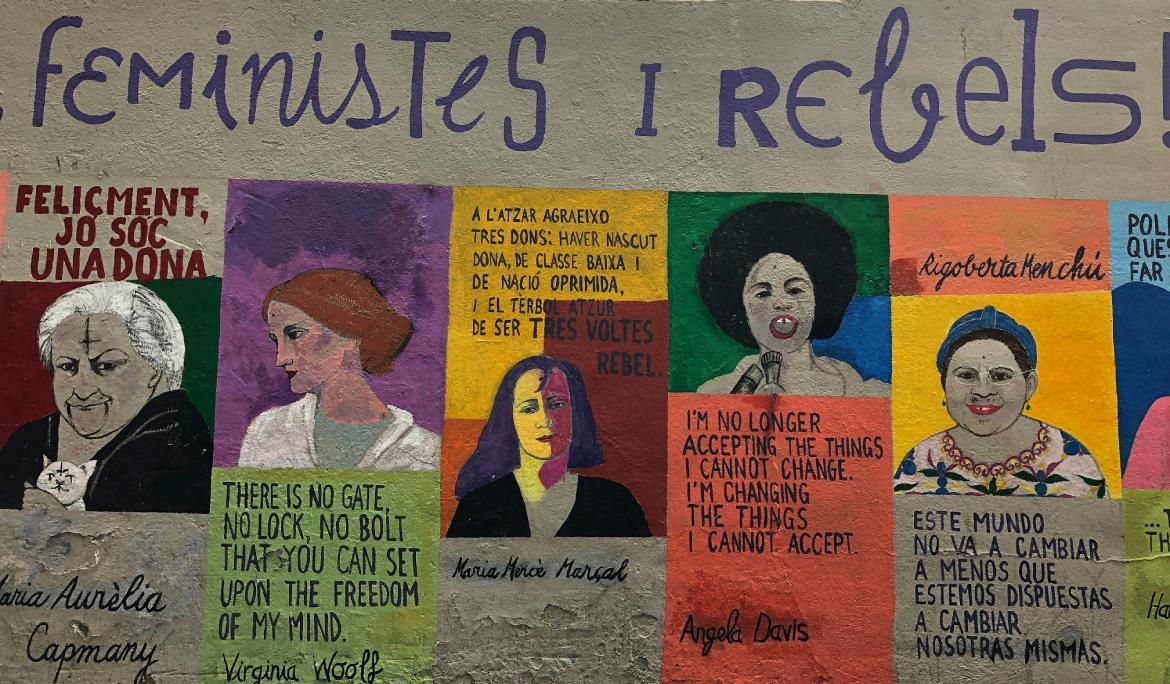 FEMINISTES I REBELS!
FELIÇMENT,
JO SÓC
UNA DONA
Maria Aurèlia
Capmany
THERE IS NO GATE,
NO LOCK, NO BOLT
THAT YOU CAN SET
UPON THE FREEDOM
OF MY MIND.
Virginia Woolf
A L'ATZAR AGRAEIXO
TRES DONS: HAVER NASCUT
DONA, DE CLASSE BAIXA I
DE NACIÓ OPRIMIDA,
I EL TÈRBOL ATZUR
DE SER TRES VOLTES
REBEL.
Maria Mercè Marçal
I'M NO LONGER
ACCEPTING THE THINGS
I CANNOT CHANGE.
I'M CHANGING
THE THINGS
I CANNOT ACCEPT.
Angela Davis
Rigoberta Menchú
ESTE MUNDO
NO VA A CAMBIAR
A MENOS QUE
ESTEMOS DISPUESTAS
A CAMBIAR
NOSOTRAS MISMAS.
QUES
FAR